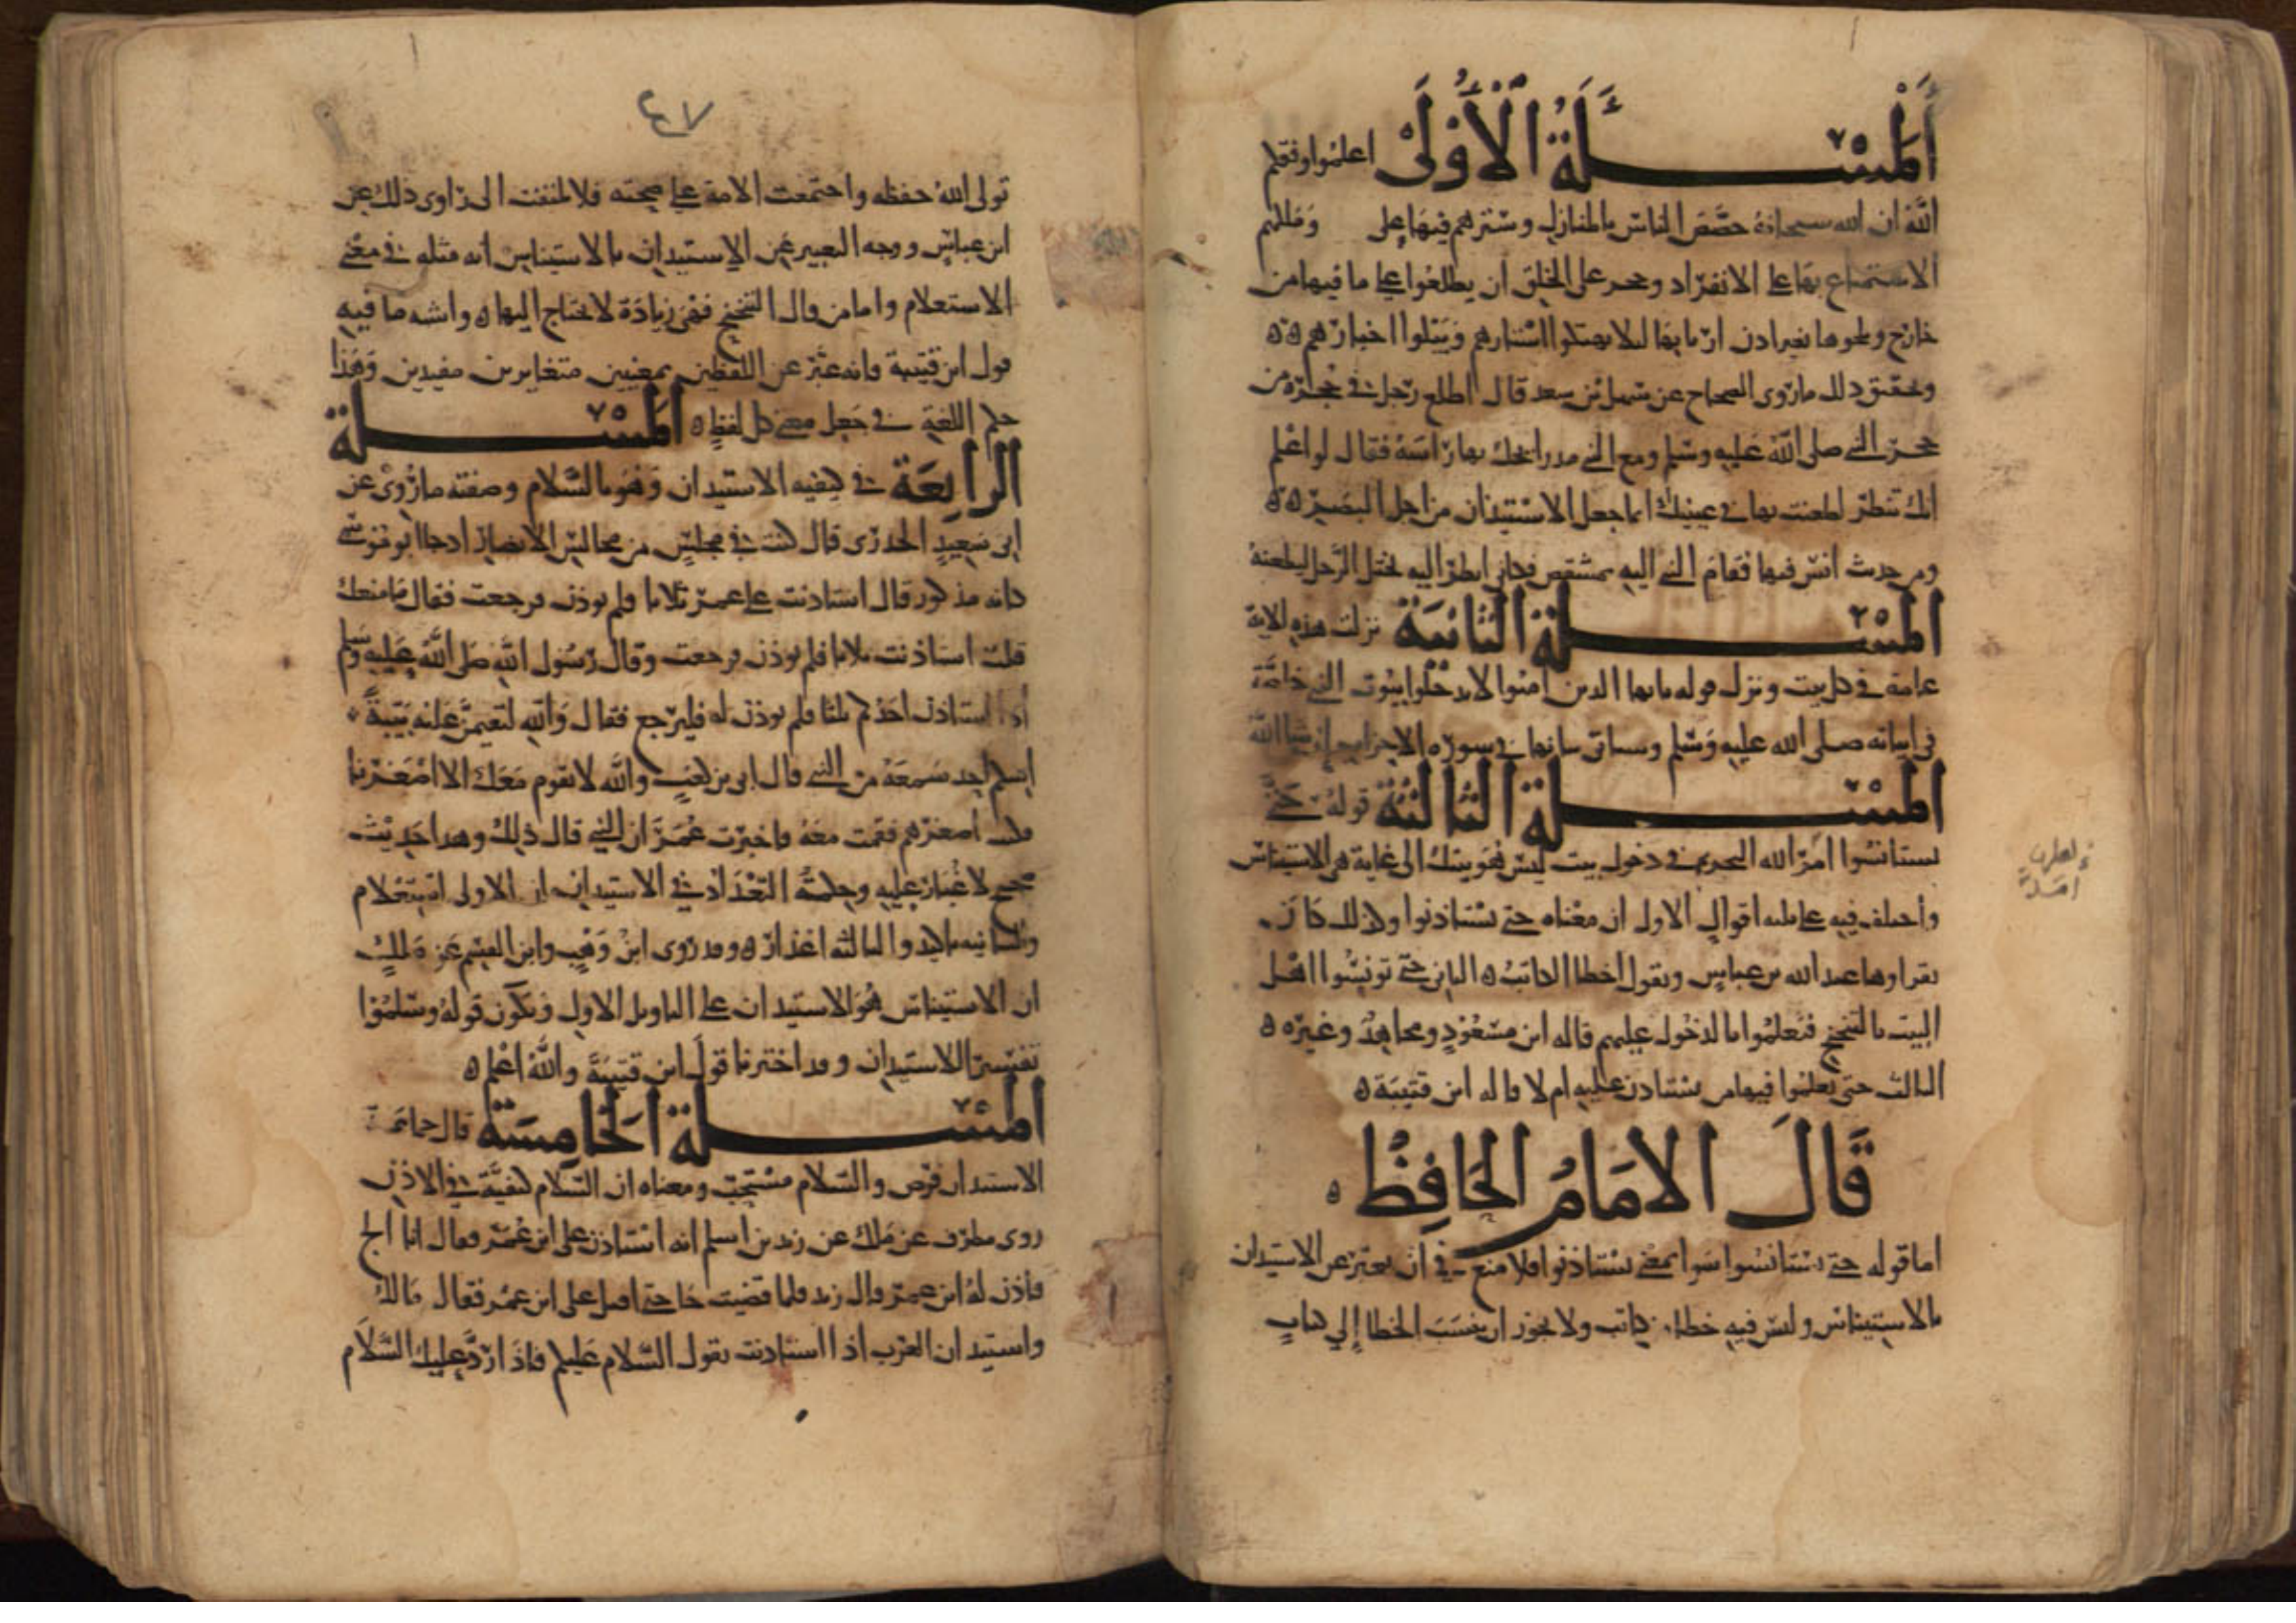 المسئلة الأولى اعلموا وفقكم
الله ان الله سبحانه خصص الناس بالمنازل وسترهم فيها على وملكهم
الاستمتاع بها على الانفراد وحجر على الخلق ان يطلعوا على ما فيها من
خارج ويلجوها بغير اذن اربابها ليلا يهتكوا استارهم ويبلوا اخبارهم
وتحقيق ذلك ما روى الصحاح عن سهل بن سعد قال اطلع رجل في حجرة من
حجر النبي صلى الله عليه وسلم ومع النبي مدرا يحك بها راسه فقال لو اعلم
انك تنظر لطعنت بها في عينيك انما جعل الاستيذان من اجل البصر
ومن حديث انس فيها فقام النبي اليه بمشقص فكاني انظر اليه يختل الرجل ليطعنه
المسئلة الثانية نزلت هذه الاية
عامة في كل بيت ونزل قوله يايها الذين امنوا لا تدخلوا بيوت النبي خاصة
في ابياته صلى الله عليه وسلم وسياتي بيانها في سورة الاحزاب ان شا الله
المسئلة الثالثة قوله حتى
تستانسوا امر الله بيت ليس هو بيتك الى غاية هي الاستيناس
واختلف فيه على ثلثه اقوال الاول ان معناه حتى تستاذنوا وكذلك كان
يقراوها عبد الله بن عباس ويقول اخطا الكاتب الثاني حتى تونسوا اهل
البيت بالتنحنح فتعلموا بالدخول عليهم قاله ابن مسعود ومجاهد وغيره
الثالث حتى تعلموا فيها من تستاذن عليه ام لا قاله ابن قتيبة
قال الامام الحافظ
اما قوله حتى تستانسوا سوا بمعنى تستاذنوا فلا منع في ان يعبر عن الاستيذان
بالاستيناس وليس فيه خطا من كاتب ولا يجوز ان ينسب الخطا إلى كتاب
٤٧
تولى الله حفظه واجتمعت الامة على صحته فلا يلتفت الى راوى ذلك عن
ابن عباس ووجه التعبير عن الاستيذان بالاستيناس انه مثله في معنى
الاستعلام واما من قال التنحنح فهي زيادة لا يحتاج اليها واشبه ما فيه
قول ابن قتيبة فانه عبر عن اللفظين بمعنيين متغايرين مفيدين وهذا
حكم اللغة في جعل معنى كل لفظ المسئلة
الرابعة في كيفيه الاستيذان وهو بالسلام وصفته ما روى عن
ابي سعيد الخدرى قال كنت في مجلس من مجالس الانصار اذ جا ابو موسى
كانه مذعور قال استاذنت على عمر ثلاثا فلم يوذن فرجعت فقال ما منعك
قلت استاذنت ثلاثا فلم يوذن فرجعت وقال رسول الله صلى الله عليه وسلم
اذا استاذن احدكم ثلثا فلم يوذن له فليرجع فقال والله لتقيمن عليه بينة
احد سمعه من النبي قال ابى بن كعب والله لا يقوم معك الا اصغرنا
فكنت اصغرهم فقمت معه فاخبرت عمر ان النبي قال ذلك وهذا حديث
صحيح لا غبار عليه وحكمة التعداد في الاستيذان ان الاولى استعلام
والثانيه تاكيد والثالثه اعذار وقد روى ابن وهب وابن القسم عن ملك
ان الاستيناس هو الاستيذان على التاويل الاول ويكون قوله وتسلموا
تفسيرا للاستيذان وقد اخترنا قول ابن قتيبة والله اعلم
المسئلة الخامسة قال جماعة
الاستيذان فرض والسلام مستحب ومعناه ان السلام كيفية في الاذن
روى مطرف عن ملك عن زيد بن اسلم انه استاذن على ابن عمر فقال االج
فاذن له ابن عمر قال زيد فلما قضيت حاجتى اقبل على ابن عمر فقال مالك
واستيذان العرب اذا استاذنت بقول السلام عليكم فاذا رد عليك السلام